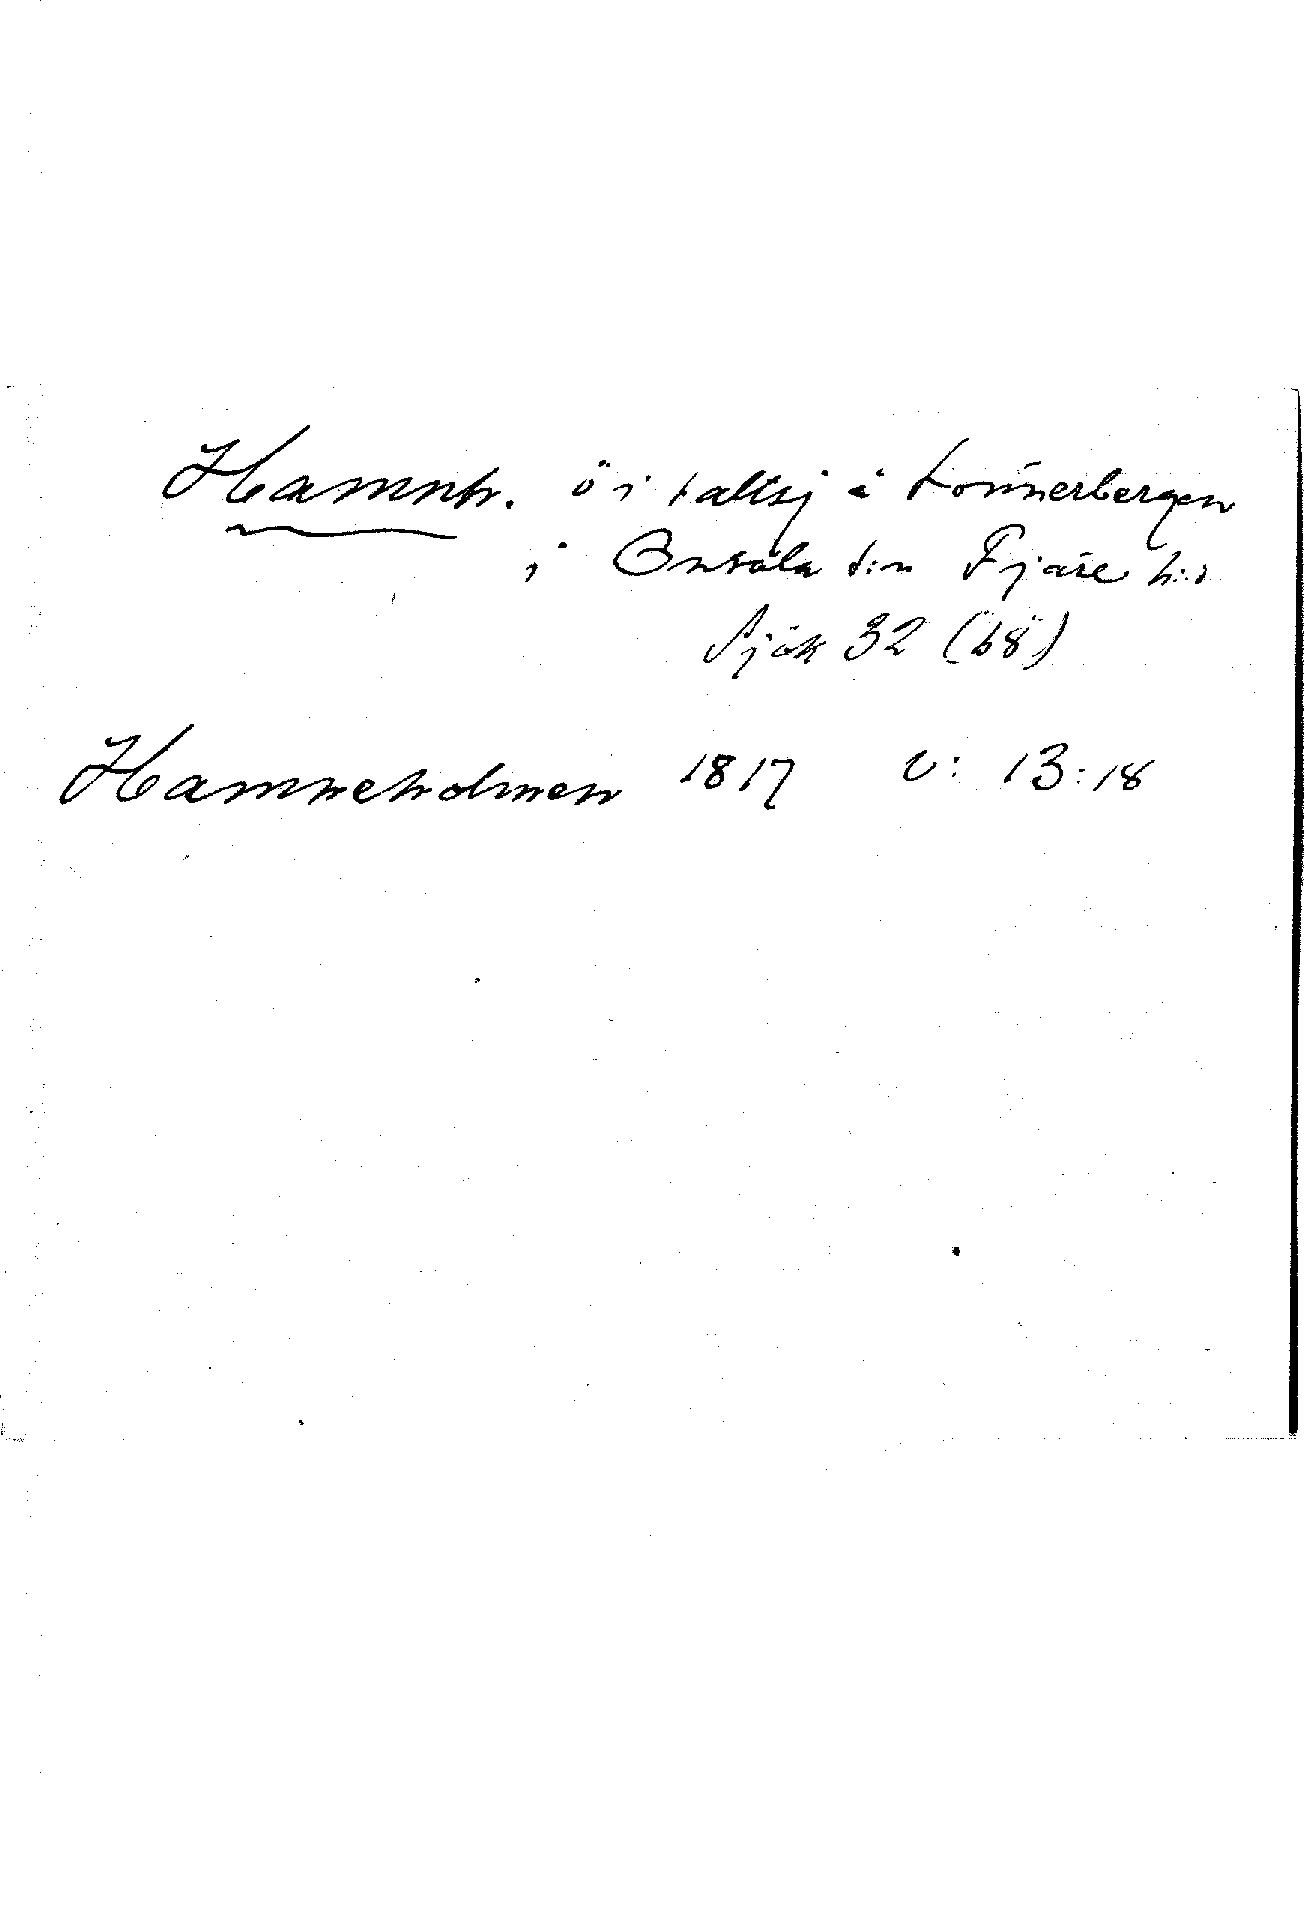 Hamnh. ö i saltsj å Lonnerbergen
i Onsala s:n Fjäre h:d
Sjök 32 (b8)
Hamneholmen 1817 U: 13:18